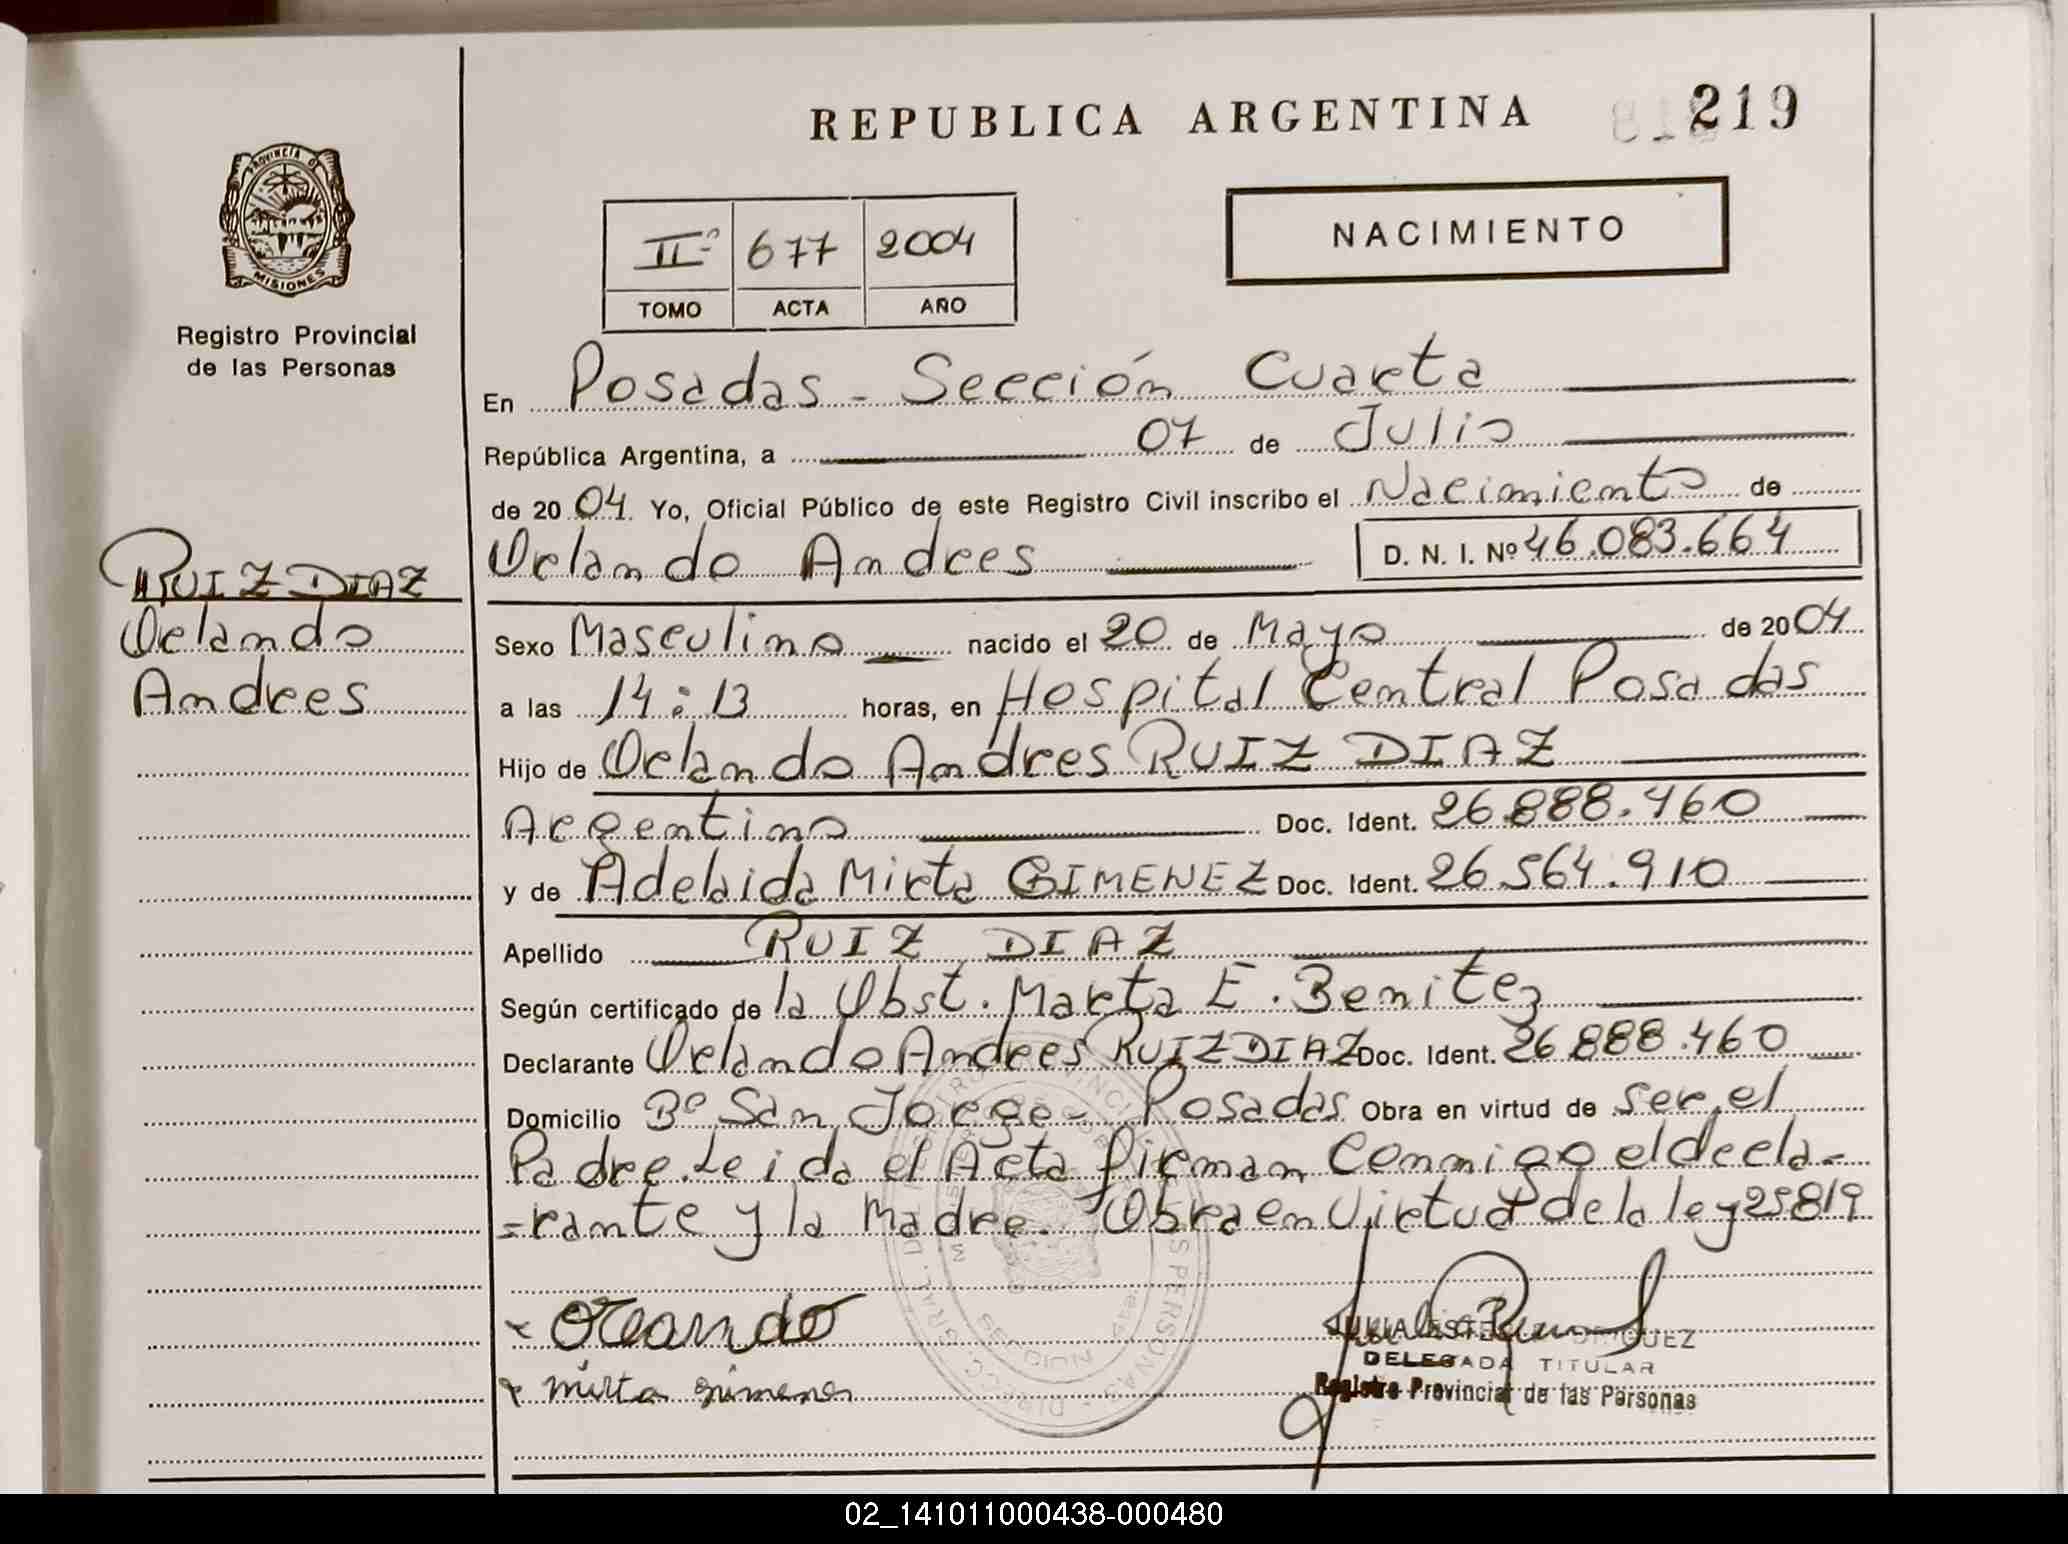 REPUBLICA ARGENTINA 219
PROVINCIA DE
MISIONES
Registro Provincial
de las Personas
IIº 677 2004
TOMO ACTA AÑO
NACIMIENTO
En Posadas - Sección Cuarta
República Argentina, a 07 de Julio
de 2004 Yo, Oficial Público de este Registro Civil inscribo el Nacimiento de
Orlando Andres D. N. I. Nº 46.083.664
RUIZ DIAZ
Orlando
Andres
Sexo Masculino nacido el 20 de Mayo de 2004
a las 14:13 horas, en Hospital Central Posadas
Hijo de Orlando Andres RUIZ DIAZ
Argentino Doc. Ident. 26.888.460
y de Adelaida Mirta GIMENEZ Doc. Ident. 26.564.910
Apellido RUIZ DIAZ
Según certificado de la Obst. Marta E. Benitez
Declarante Orlando Andrees RUIZ DIAZ Doc. Ident. 26.888.460
Domicilio Bº San Jorge - Posadas Obra en virtud de ser el
Padre. Leida el Acta firman Conmigo el decla-
=rante y la Madre. Obra en Virtud de la ley 25819
Orlando
mirta gimenez
DELEGADA TITULAR
Registro Provincial de las Personas
02_141011000438-000480